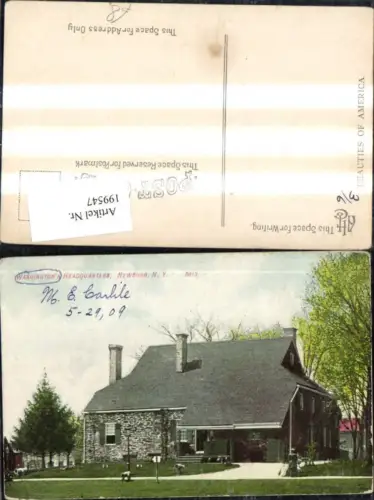 This Space for Address Only
This Space Reserved for Postmark
Artikel Nr.
199547
This Space for Writing
BEAUTIES OF AMERICA
WASHINGTON'S HEADQUARTERS, NEWBURGH, N. Y.
M. E. Carlile
5-29,09